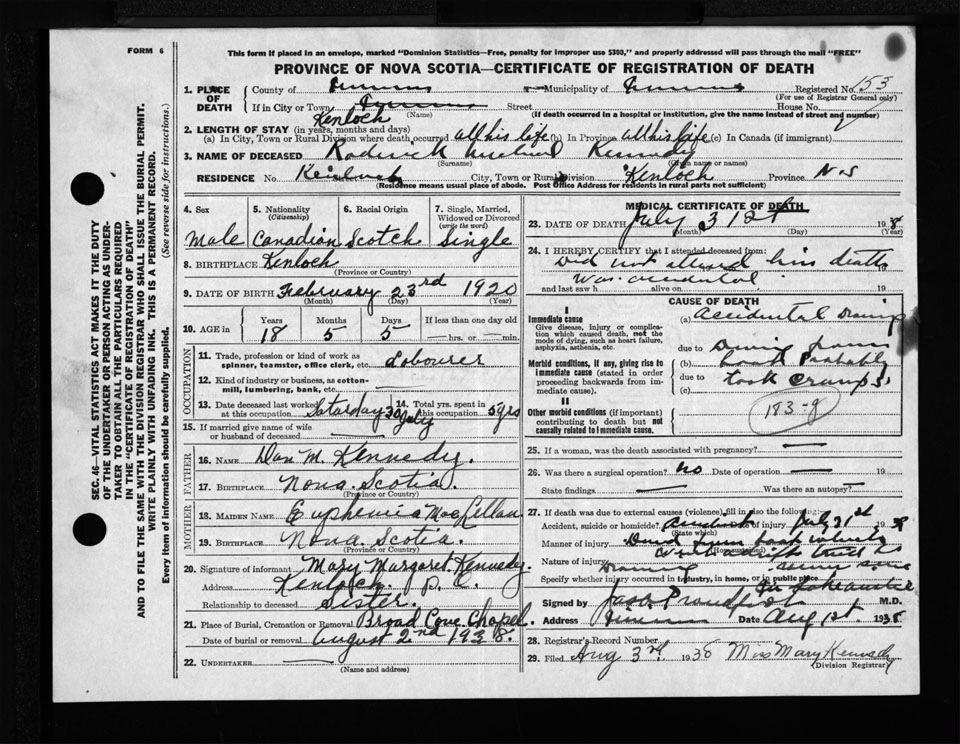 FORM 6
This form if placed in an envelope, marked "Dominion Statistics—Free, penalty for improper use $300," and properly addressed will pass through the mail "FREE"
PROVINCE OF NOVA SCOTIA—CERTIFICATE OF REGISTRATION OF DEATH
SEC. 46—VITAL STATISTICS ACT MAKES IT THE DUTY
OF THE UNDERTAKER OR PERSON ACTING AS UNDER-
TAKER TO OBTAIN ALL THE PARTICULARS REQUIRED
IN THE "CERTIFICATE OF REGISTRATION OF DEATH"
AND TO FILE THE SAME WITH THE DIVISION REGISTRAR WHO SHALL ISSUE THE BURIAL PERMIT.
WRITE PLAINLY WITH UNFADING INK. THIS IS A PERMANENT RECORD.
Every item of information should be carefully supplied. (See reverse side for instructions.)
1. PLACE OF DEATH
County of Municipality of Registered No. 153
(For use of Registrar General only)
If in City or Town Street House No.
(Name) (If death occurred in a hospital or institution, give the name instead of street and number)
Kenloch
2. LENGTH OF STAY (in years, months and days)
(a) In City, Town or Rural Division where death occurred all his life (b) In Province all his life (c) In Canada (if immigrant)
3. NAME OF DECEASED Roderick Michael Kennedy
(Surname) (Given name or names)
RESIDENCE No. Kenloch Street City, Town or Rural Division Kenloch Province N.S
(Residence means usual place of abode. Post Office Address for residents in rural parts not sufficient)
4. Sex
Male
5. Nationality
(Citizenship)
Canadian
6. Racial Origin
Scotch
7. Single, Married,
Widowed or Divorced
(write the word)
Single
8. BIRTHPLACE Kenloch
(Province or Country)
9. DATE OF BIRTH February 23rd 1920
(Month) (Day) (Year)
10. AGE in
Years Months Days If less than one day old
18 5 5 hrs. or min.
OCCUPATION
11. Trade, profession or kind of work as
spinner, teamster, office clerk, etc. Labourer
12. Kind of industry or business, as cotton-
mill, lumbering, bank, etc. —
13. Date deceased last worked
at this occupation Saturday 30 July
14. Total yrs. spent in
this occupation 5 yrs
15. If married give name of wife
or husband of deceased —
FATHER
16. NAME Dan M. Kennedy.
17. BIRTHPLACE Nova Scotia.
(Province or Country)
MOTHER
18. MAIDEN NAME Euphemia MacLellan
19. BIRTHPLACE Nova Scotia.
(Province or Country)
20. Signature of informant Mary Margaret Kennedy.
Address Kenloch. P. O.
Relationship to deceased Sister.
21. Place of Burial, Cremation or Removal Broad Cove Chapel.
Date of burial or removal August 2nd 1938.
22. UNDERTAKER —
(Name and address)
MEDICAL CERTIFICATE OF DEATH
23. DATE OF DEATH July 31st 1938
(Month) (Day) (Year)
24. I HEREBY CERTIFY that I attended deceased from:
Did not attend him death
was accidental
and last saw h alive on 19
CAUSE OF DEATH
I
Immediate cause
Give disease, injury or complica-
tion which caused death, not the
mode of dying, such as heart failure,
asphyxia, asthenia, etc.
Morbid conditions, if any, giving rise to
immediate cause (stated in order
proceeding backwards from im-
mediate cause).
II
Other morbid conditions (important)
contributing to death but not
causally related to immediate cause.
(a) Accidental
due to
(b) Probably
due to took cramps
(c)
183-g
25. If a woman, was the death associated with pregnancy? —
26. Was there a surgical operation? No Date of operation — 19
State findings — Was there an autopsy? —
27. If death was due to external causes (violence) fill in also the following:—
Accident, suicide or homicide? Accident Date of injury July 31st 1938
(State which)
Manner of injury
(How sustained)
Nature of injury
Specify whether injury occurred in industry, in home, or in public place
Signed by Jas. Proudfoot M.D.
Address Date Aug 1st. 1938
28. Registrar's Record Number
29. Filed Aug 3rd. 1938 Miss Mary Kennedy
(Division Registrar)